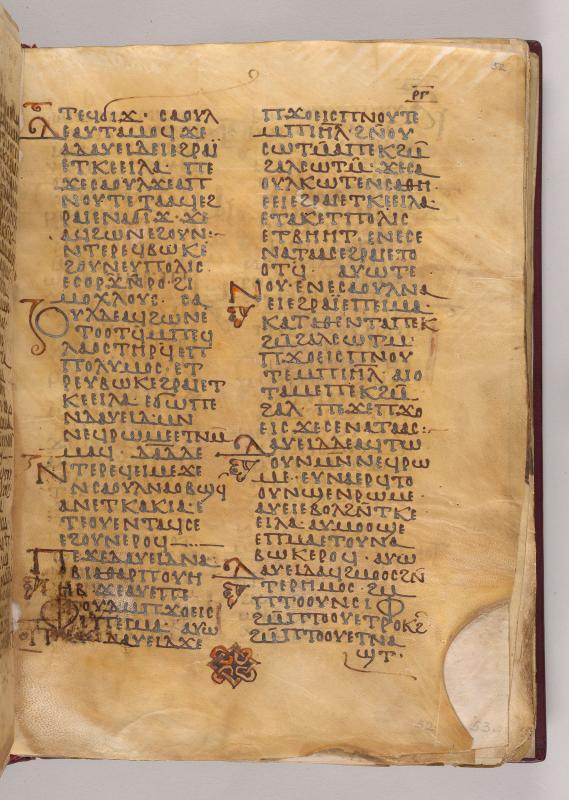 52
ⲣⲅ
ⲧⲉϥϭⲓϫ· ⲥⲁⲟⲩⲗ
ⲇⲉ ⲁⲩⲧⲁⲙⲟϥ ϫⲉ
ⲁⲇⲁⲩⲉⲓⲇ ⲉⲓ ⲉϩⲣⲁⲓ̈
ⲉⲧⲕⲉⲉⲓⲗⲁ· ⲡⲉ
ϫⲉ ⲥⲁⲟⲩⲗ ϫⲉ ⲁⲡ
ⲛⲟⲩⲧⲉ ⲧⲁⲁϥ ⲉϩ
ⲣⲁⲓ ⲉⲛⲁϭⲓϫ· ϫⲉ
ⲁϥϩⲱⲛ ⲉϩⲟⲩⲛ:
ⲛⲧⲉⲣⲉϥⲃⲱⲕ ⲉ
ϩⲟⲩⲛ ⲉⲩⲡⲟⲗⲓⲥ·
ⲉⲥⲟⲣϫ ⲛⲣⲟ· ϩⲓ
ⲙⲟⲭⲗⲟⲩⲥ· ⲥⲁ
ⲟⲩⲗ ⲇⲉ ⲁϥϩⲱⲛ ⲉ
ⲧⲟⲟⲧϥ ⲙⲡⲉϥ
ⲗⲁⲟⲥ ⲧⲏⲣϥ ⲉⲡ
ⲡⲟⲗⲩⲙⲟⲥ· ⲉⲧ
ⲣⲉⲩⲃⲱⲕ ⲉϩⲣⲁⲓ ⲉⲧ
ⲕⲉⲉⲓⲗⲁ· ⲉϭⲱⲡⲉ
ⲛⲇⲁⲩⲉⲓⲇ ⲙⲛ
ⲛⲉϥⲣⲱⲙⲉ ⲉⲧⲛⲙ
ⲙⲁϥ·
ⲛⲧⲉⲣⲉϥⲉⲓⲙⲉ ϫⲉ
ⲛⲥⲁⲟⲩⲗ ⲛⲁⲟⲃϣϥ
ⲁⲛ ⲉⲧⲕⲁⲕⲓⲁ· ⲉ
ⲧⲉⲟⲩⲛⲧⲁϥⲥⲉ
ⲉϩⲟⲩⲛ ⲉⲣⲟϥ
ⲡⲉϫⲉ ⲇⲁⲩⲉⲓⲇ ⲛⲁ
ⲃⲓⲁⲑⲁⲣ ⲡⲟⲩⲏ
ⲏⲃ· ϫⲉ ⲁⲩⲉ ⲡⲉ
ⲫⲟⲩⲇ ⲙⲡϫⲟⲉⲓⲥ
ⲉⲡⲉⲓⲙⲁ· ⲁⲩⲱ
ⲡⲉϫⲉ ⲇⲁⲩⲉⲓⲇ ϫⲉ
ⲡϫⲟⲉⲓⲥ ⲡⲛⲟⲩⲧⲉ
ⲙⲡⲓⲏⲗ· ϩⲛ ⲟⲩ
ⲥⲱⲧⲙ ⲁⲡⲉⲕϩⲙ
ϩⲁⲗ ⲥⲱⲧⲙ· ϫⲉ ⲥⲁ
ⲟⲩⲗ ⲕⲱⲧⲉ ⲛⲥⲁⲑⲏ
ⲉⲉⲓ ⲉϩⲣⲁⲓ ⲉⲧⲕⲉⲉⲓⲗⲁ·
ⲉⲧⲁⲕⲉ ⲧⲡⲟⲗⲓⲥ
ⲉⲧⲃⲏⲏⲧ· ⲉⲛⲉ ⲥⲉ
ⲛⲁⲧⲁⲁⲥ ⲉϩⲣⲁⲓ ⲉⲧⲟ
ⲟⲧϥ· ⲁⲩⲱ ⲧⲉ
ⲛⲟⲩ· ⲉⲛⲉ ⲥⲁⲟⲩⲗ ⲛⲁ
ⲉⲓ ⲉϩⲣⲁⲓ̈ ⲉⲡⲉⲓⲙⲁ·
ⲕⲁⲧⲁ ⲑⲉ ⲛⲧⲁⲡⲉⲕ
ϩⲙϩⲁⲗ ⲥⲱⲧⲙ
ⲡϫⲟⲉⲓⲥ ⲡⲛⲟⲩ
ⲧⲉ ⲙⲡⲓⲏⲗ· ⲁⲓⲟ
ⲧⲁⲙⲉ ⲡⲉⲕϩⲙ
ϩⲁⲗ· ⲡⲉϫⲉ ⲡϫⲟ
ⲉⲓⲥ ϫⲉ ⲥⲉⲛⲁⲧⲁⲁⲥ:
ⲇⲁⲩⲉⲓⲇ ⲇⲉ ⲁϥⲧⲱ
ⲟⲩⲛ ⲙⲛ ⲛⲉϥⲣⲱ
ⲙⲉ· ⲉⲩⲛⲁⲣϥⲧⲟ
ⲟⲩⲛϣⲉ ⲛⲣⲱⲙⲉ·
ⲁⲩⲉⲓ ⲉⲃⲟⲗϩⲛ ⲧⲕⲉ
ⲉⲓⲗⲁ· ⲁⲩⲙⲟⲟϣⲉ
ⲉⲡⲙⲁ ⲉⲧⲟⲩⲛⲁ
ⲃⲱⲕ ⲉⲣⲟϥ· ⲁⲩⲱ
ⲇⲁⲩⲉⲓⲇ ⲁϥϩⲙⲟⲟⲥ ϩⲛ
ⲧⲉⲣⲏⲙⲟⲥ· ϩⲙ
ⲡⲧⲟⲟⲩ ⲛⲥⲓⲫ
ϩⲙ ⲡⲧⲟⲟⲩ ⲉⲧⲣⲟⲕϩ
ϩⲙ ⲡⲧⲟⲟⲩ ⲉⲧⲛⲁ
ϣⲧ·
52
53